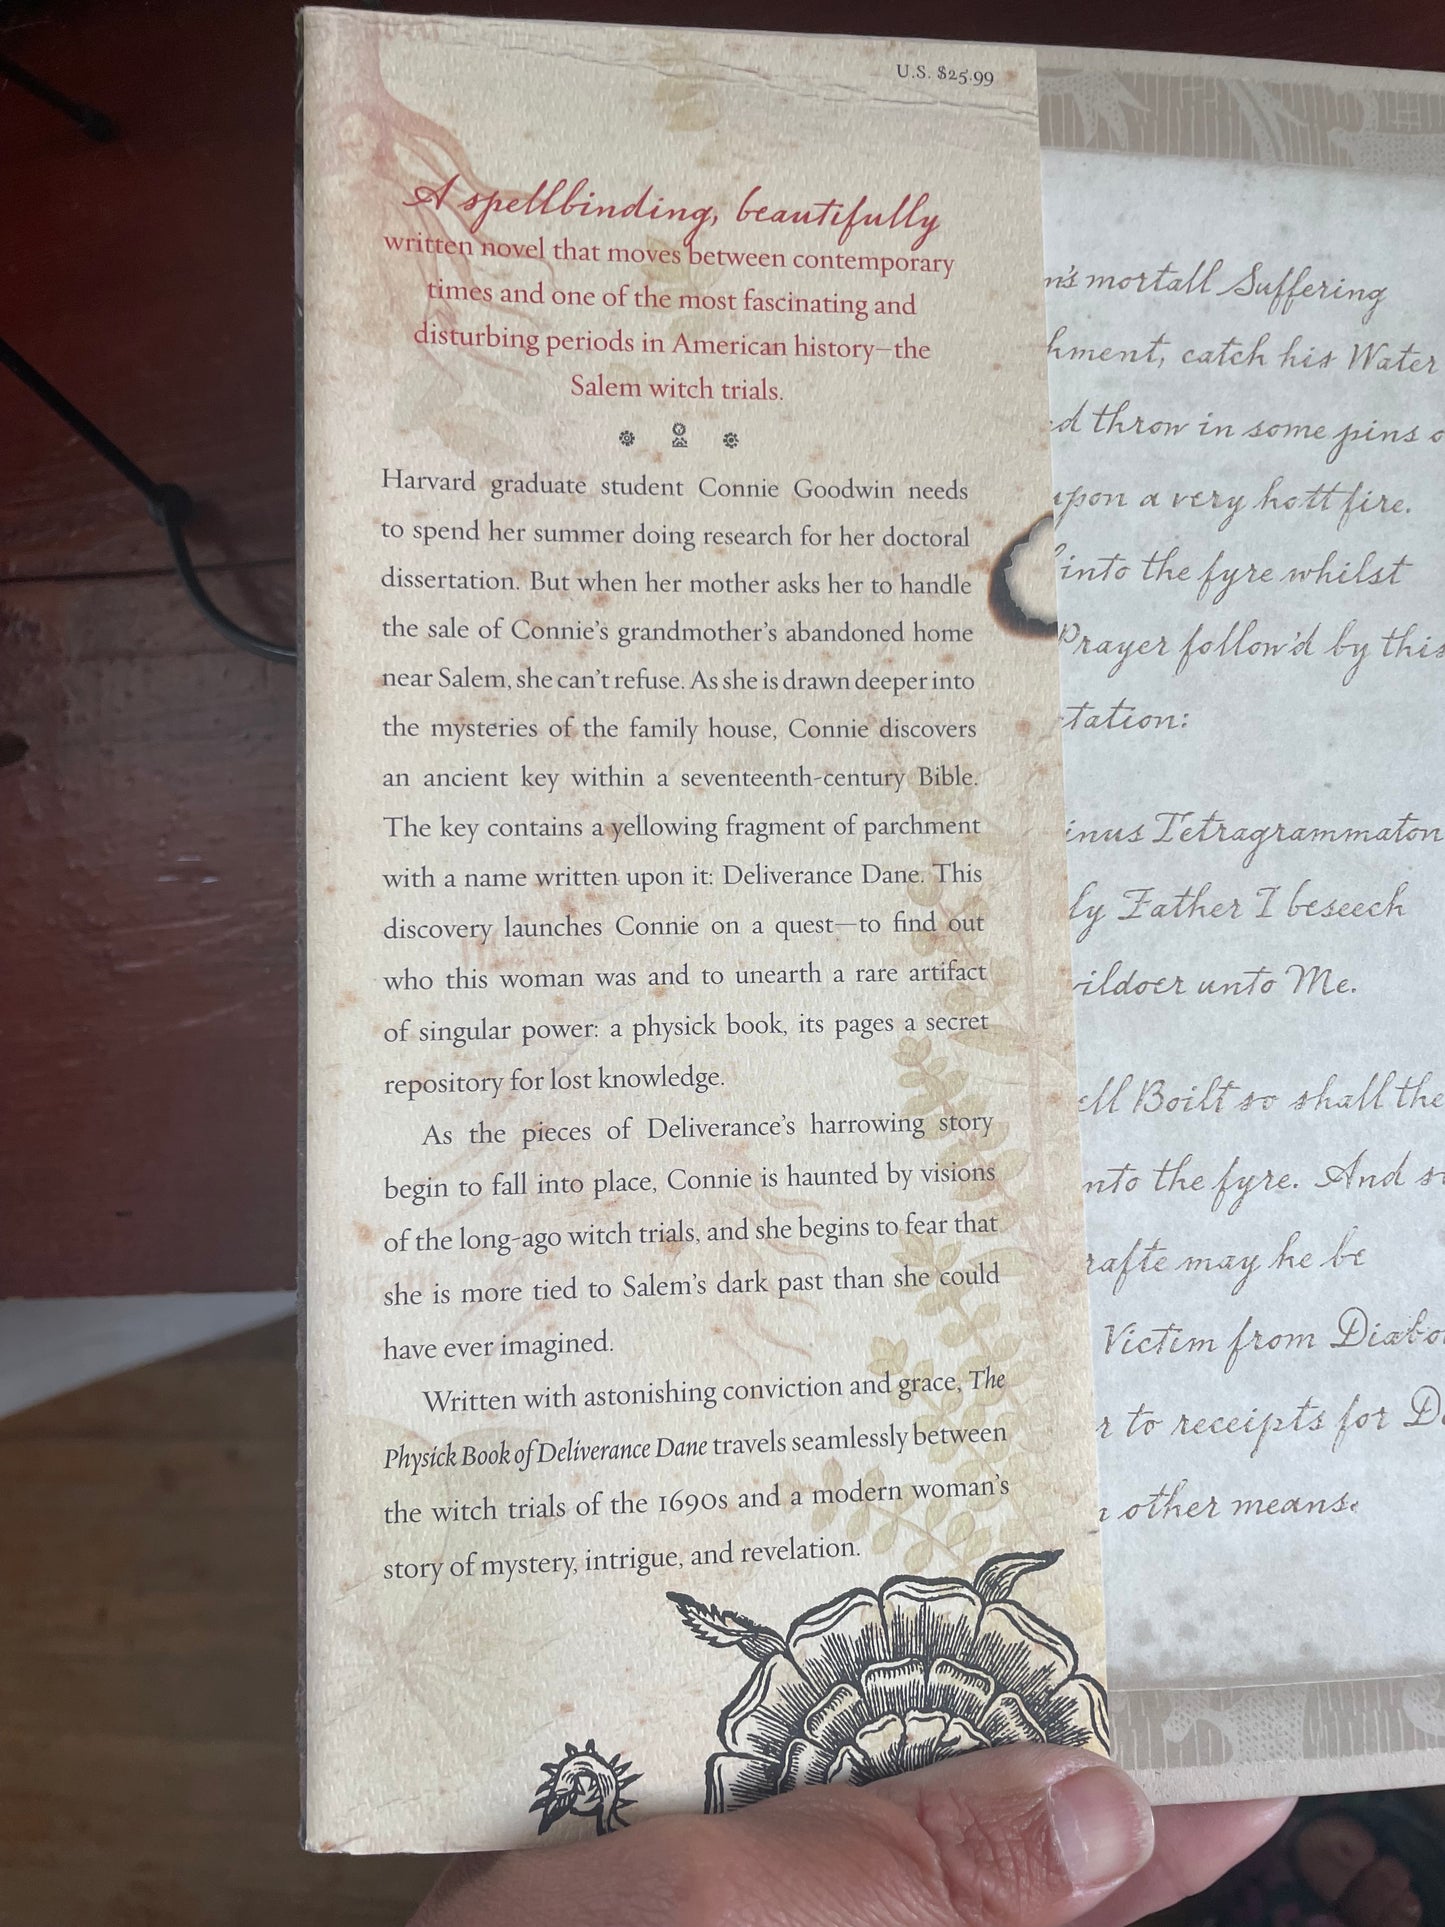 U.S. $25.99
A spellbinding, beautifully
written novel that moves between contemporary
times and one of the most fascinating and
disturbing periods in American history—the
Salem witch trials.
Harvard graduate student Connie Goodwin needs
to spend her summer doing research for her doctoral
dissertation. But when her mother asks her to handle
the sale of Connie's grandmother's abandoned home
near Salem, she can't refuse. As she is drawn deeper into
the mysteries of the family house, Connie discovers
an ancient key within a seventeenth-century Bible.
The key contains a yellowing fragment of parchment
with a name written upon it: Deliverance Dane. This
discovery launches Connie on a quest—to find out
who this woman was and to unearth a rare artifact
of singular power: a physick book, its pages a secret
repository for lost knowledge.
As the pieces of Deliverance's harrowing story
begin to fall into place, Connie is haunted by visions
of the long-ago witch trials, and she begins to fear that
she is more tied to Salem's dark past than she could
have ever imagined.
Written with astonishing conviction and grace, The
Physick Book of Deliverance Dane travels seamlessly between
the witch trials of the 1690s and a modern woman's
story of mystery, intrigue, and revelation.
mortall Suffering
catch his Water
throw in some pins
upon a very hott fire.
into the fyre whilst
Prayer follow'd by this
Tetragrammaton
Father I beseech
unto Me.
Boilt so shall the
the fyre. And
may he be
Victim from
to receipts for
other means.